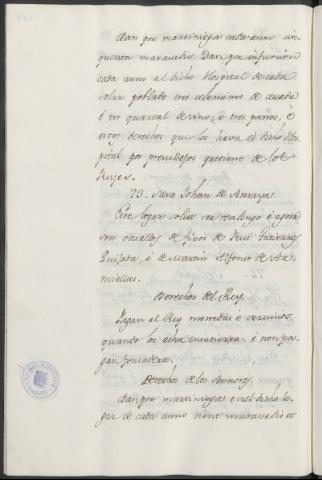 Dan por martiniega cada anno cin-
quenta maravedis. Dan por infurcion
cada anno al dicho Hospital de cada
solar poblado tres celemines de cevada
é un quartal de vino, é tres panes, é
estos derechos que los lieva el dicho Hos-
pital por previllejos que tiene de los
Reyes.
73. Sant Johan de Amaya.
Este logar solia ser realengo é agora
son vasallos de fijos de Rui Gutierrez
Quijada, é de Martin Alfonso de Ar-
miellas.
Derechos del Rey.
Pagan al Rey monedas é servicios
quando los echa en su tierra, é non pa-
gan fonsadera.
Derechos de los Sennores.
Dan por martiniega en el dicho lo-
gar de cada anno cient maravedis et